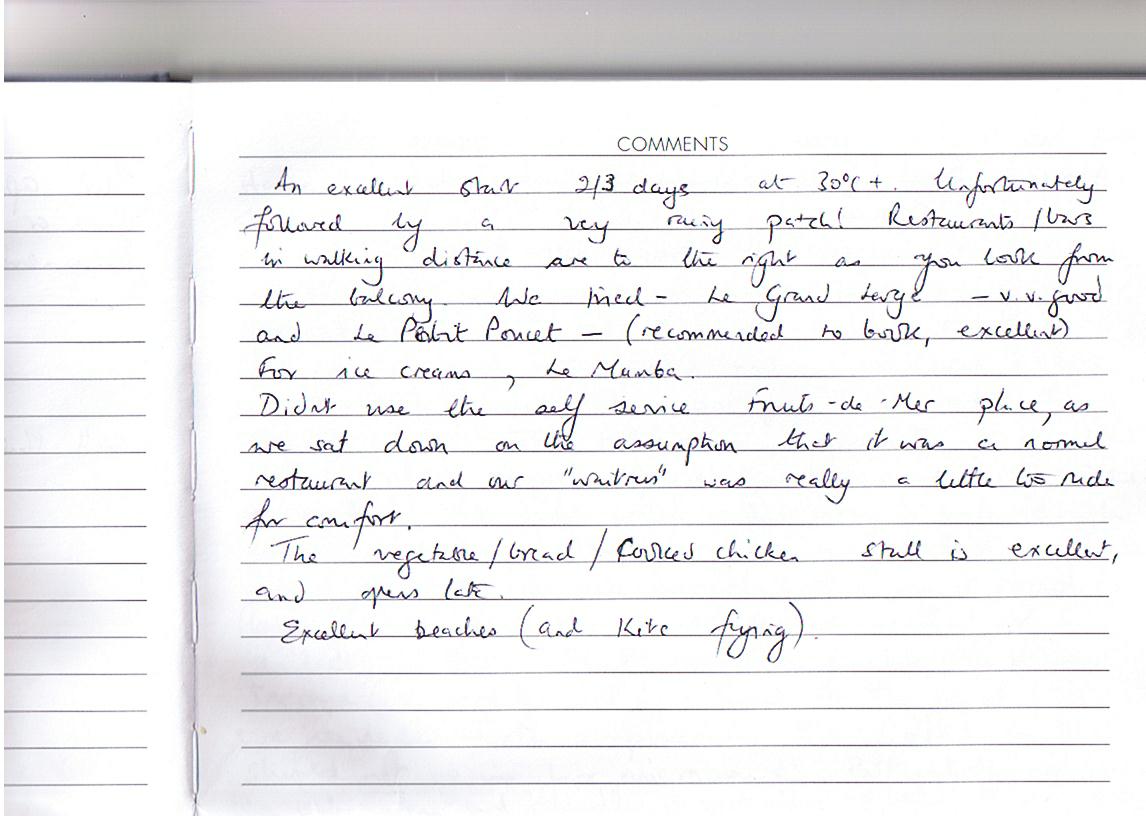 COMMENTS
An excellent start 2/3 days at 30°C+. Unfortunately
followed by a very rainy patch! Restaurants/bars
in walking distance are to the right as you look from
the balcony. We tried - Le Grand Large - v.v. good
and Le Petit Poucet - (recommended to book, excellent)
For ice creams, Le Mamba.
Didn't use the self service Fruits-de-Mer place, as
we sat down on the assumption that it was a normal
restaurant and our "waitress" was really a little too rude
for comfort.
The vegetable/bread/cooked chicken stall is excellent,
and opens late.
Excellent beaches (and kite flying).